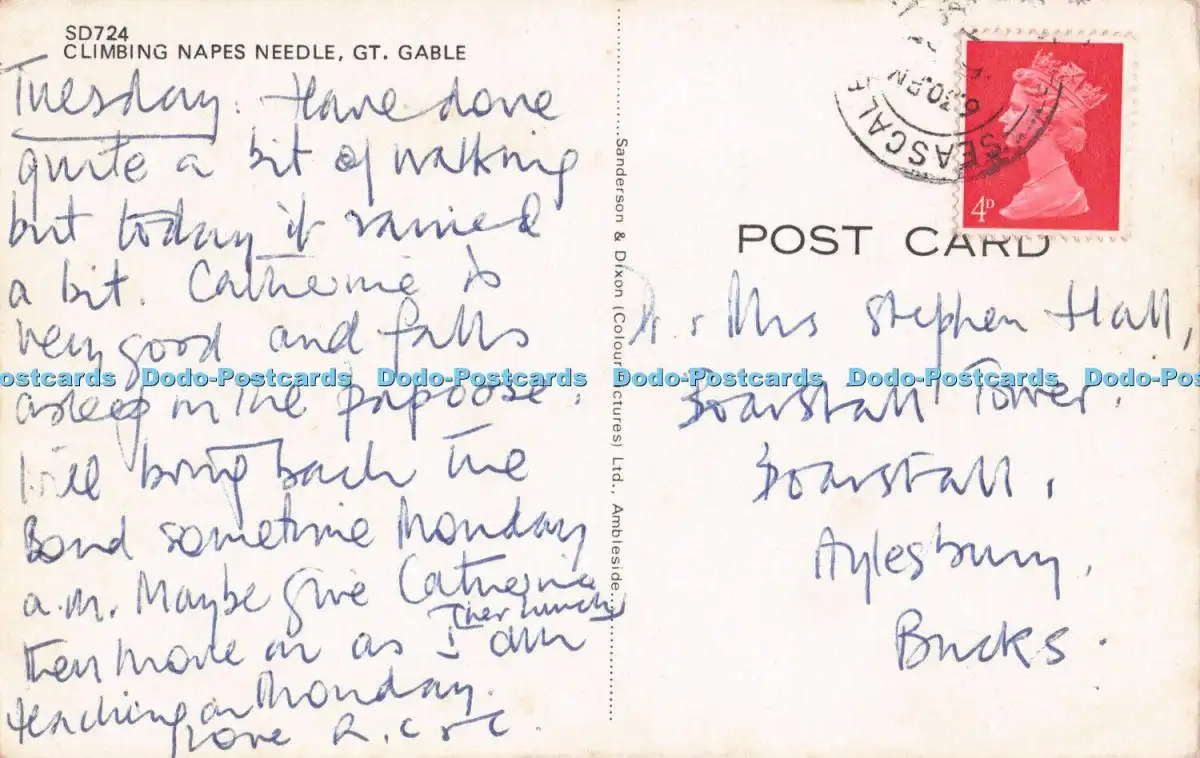 SD724
CLIMBING NAPES NEEDLE, GT. GABLE
Tuesday. Have done
quite a bit of walking
but today it rained
a bit. Catherine is
very good and falls
asleep in the papoose.
Will bring back the
Band sometime Monday
a.m. Maybe give Catherine
(her lunch)
then move on as I am
teaching on Monday.
Love R, C & C.
Sanderson & Dixon (Colour Pictures) Ltd., Ambleside
SEASCALE
6.30 PM
4D
POST CARD
Mrs Stephen Hall,
Boarstall Tower,
Boarstall,
Aylesbury,
Bucks.
Dodo-Postcards Dodo-Postcards Dodo-Postcards Dodo-Postcards Dodo-Postcards